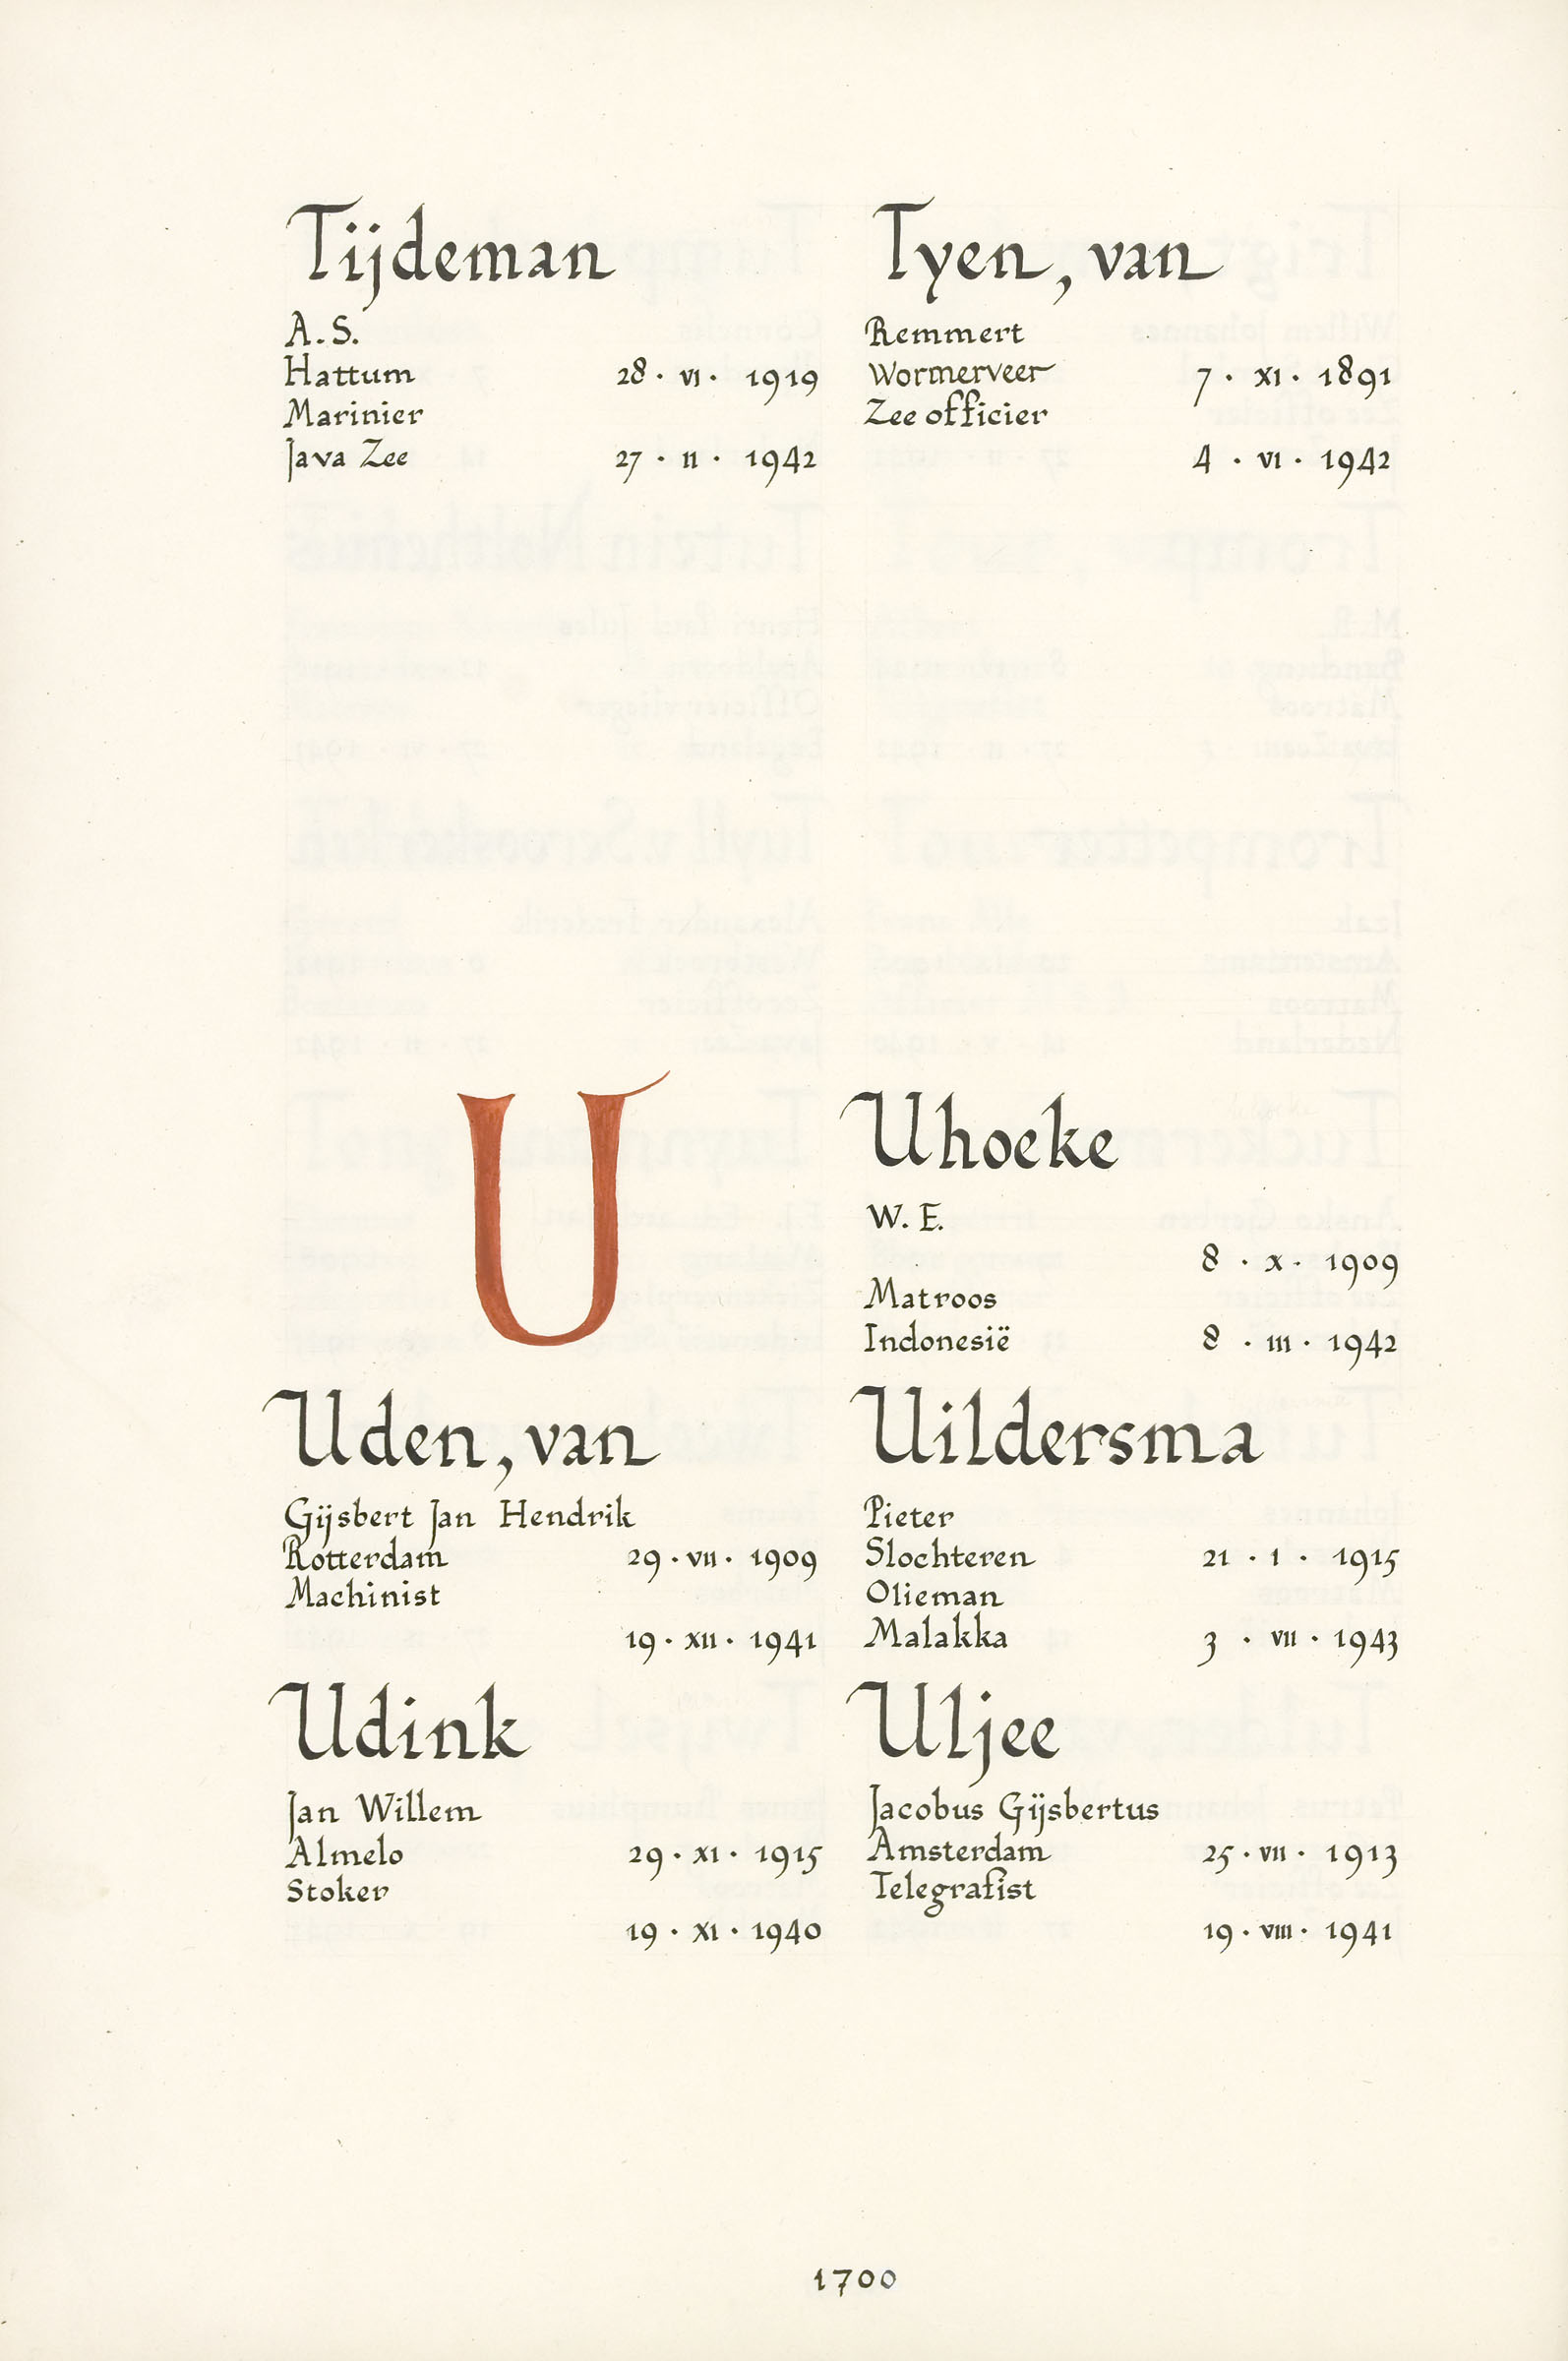 Tijdeman
A. S.
Hattum 28 · VI · 1919
Marinier
Java Zee 27 · II · 1942
Tyen, van
Remmert
Wormerveer 7 · XI · 1891
Zee officier
4 · VI · 1942
U
Uden, van
Gijsbert Jan Hendrik
Rotterdam 29 · VII · 1909
Machinist
19 · XII · 1941
Udink
Jan Willem
Almelo 29 · XI · 1915
Stoker
19 · XI · 1940
Uhoeke
W. E.
8 · X · 1909
Matroos
Indonesië 8 · III · 1942
Uildersma
Pieter
Slochteren 21 · I · 1915
Olieman
Malakka 3 · VII · 1943
Uljee
Jacobus Gijsbertus
Amsterdam 25 · VII · 1913
Telegrafist
19 · VIII · 1941
1700